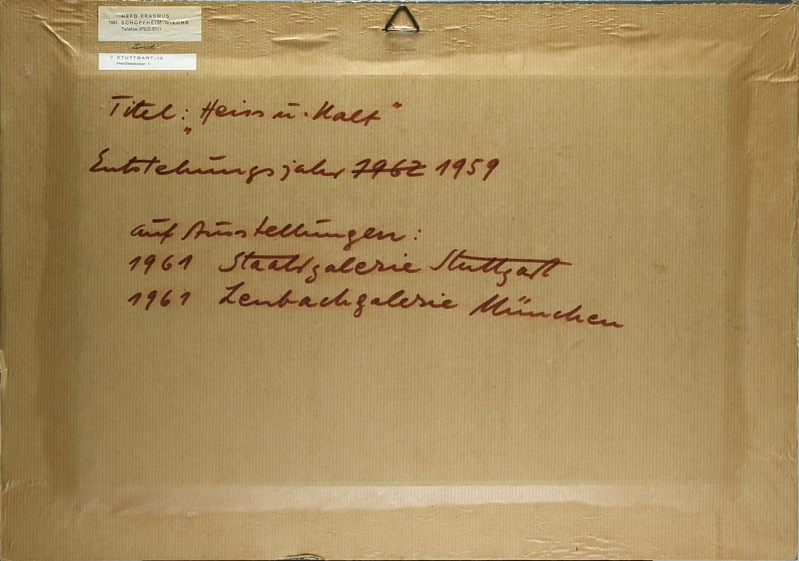 HEEG-ERASMUS
SCHOPFHEIM-WIECHS
Telefon
STUTTGART-
Titel: „Heiss u. Kalt"
Entstehungsjahr 1962 1959
auf Ausstellungen:
1961 Staatsgalerie Stuttgart
1961 Lenbachgalerie München